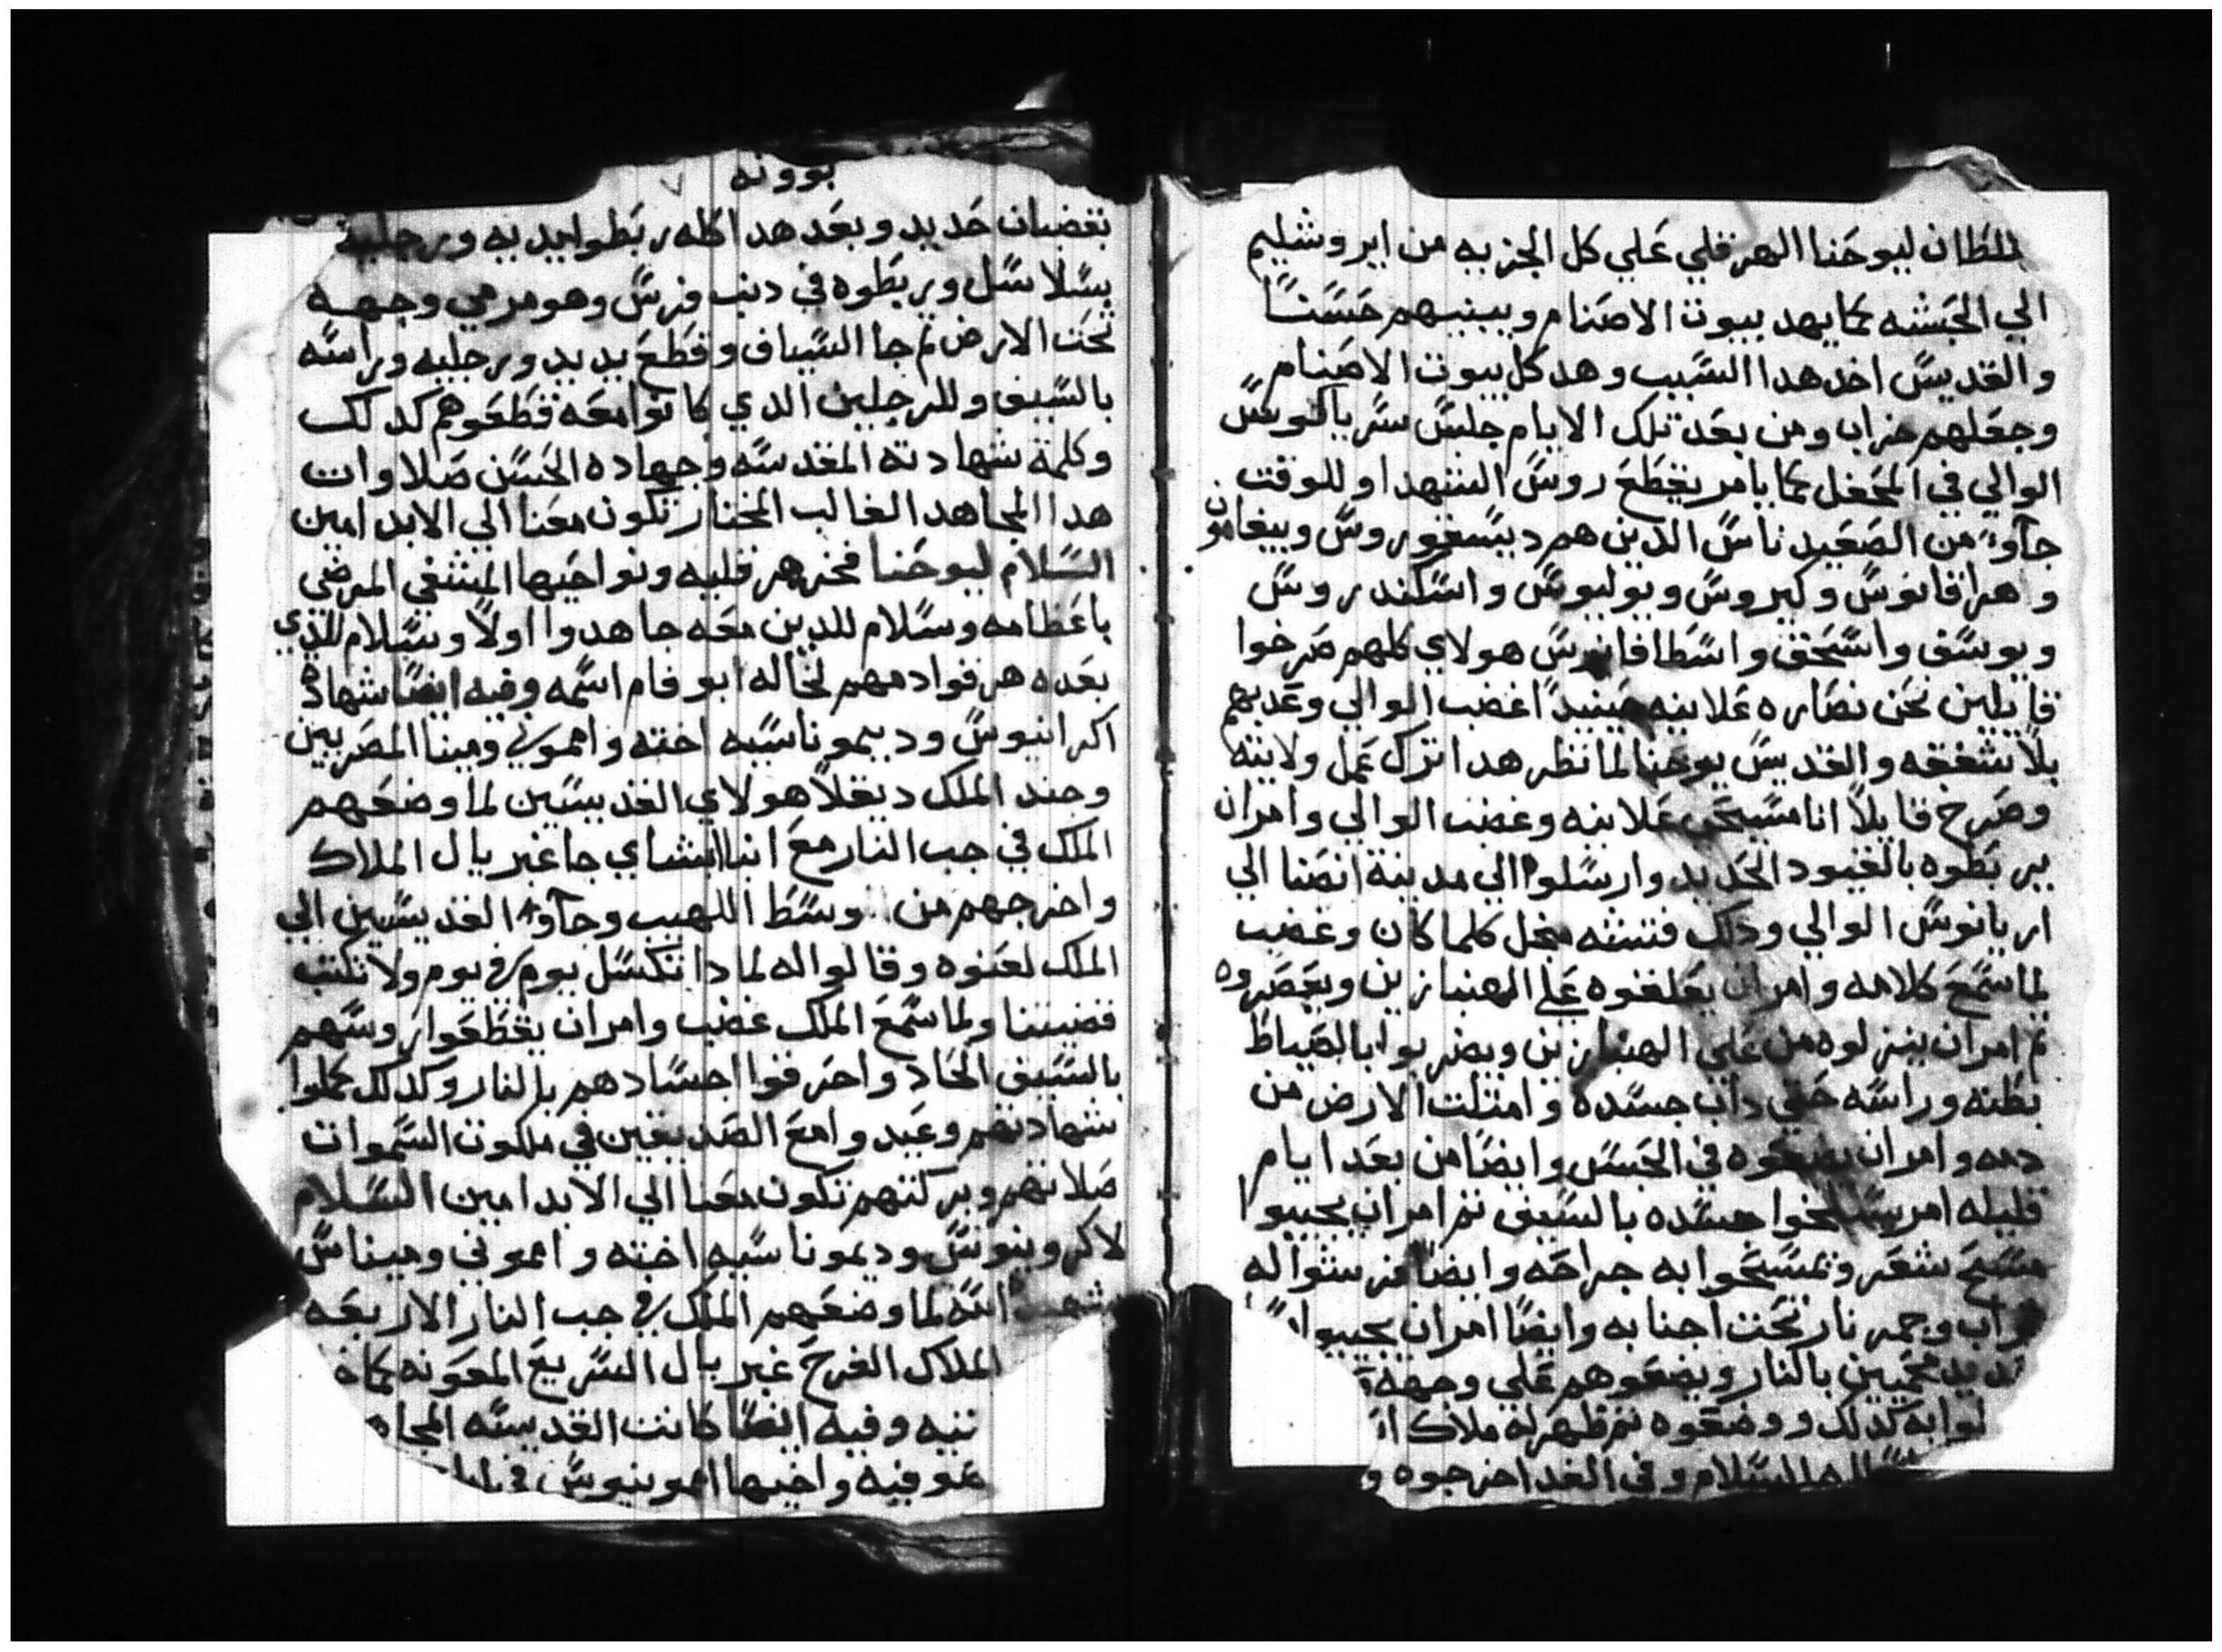 لطان ليوحنا الهرقلي علي كل الجزيه من ايروشليم
الي الحبشه كما يهد بيوت الاصنام ويبنيهم حسنًا
والقديس اخد هدا السبب وهد كل بيوت الاصنام
وجعلهم خراب ومن بعد تلك الايام جلس سرياكوس
الوالي في المحفل كما يامر يقطع روس الشهدا وللوقت
جاوا من الصعيد ناس الدين هم ديسقوروس وبيفامون
واهراقانوس وكيروس ويوليوس واسكندروس
ويوسف واسحق واسطافانوس هولاي كلهم صرخوا
قايلين نحن نصاره علانيه حينيدًا غضب الوالي وعدبهم
بلا شفقه والقديس يوحنا لما نظر هدا ترك عمل ولايته
وصرخ قايلاً انا مسيحي علانيه وغضب الوالي وامر ان
يربطوه بالقيود الحديد وارسلوه الي مدينة انصنا الي
اريانوس الوالي ودلك فتشه كلما كان وغضب
لما سمع كلامه وامر ان يعلقوه علي الهنبازين ويعصروه
تم امر ان ينزلوه من علي الهنبازين ويضربوا بالصياط
بطنه وراسه حتي داب جسده وامتلت الارض من
دمه وامر ان يضعوه في الحبس وايضًا من بعد ايام
قليله امر جسده بالسيف تم امر ان يجيبوا
مسح شعر ويمسحوا به جراحه وايضًا فرشوا له
وجمر نار تحت اجنابه وايضًا امر ان يجيبوا
محميين بالنار ويضعوهم علي وجهه
به كدلك ووضعوه تم ظهر له ملاك
السلام وفي الغد اخرجوه و
بوونه
بقضبان حديد وبعد هدا كله ربطوا يديه ورجليه
بسلاسل وربطوه في دنب فرس وهو مرمي وجهه
تحت الارض تم جا السياف وقطع يديه ورجليه وراسه
بالسيف وللرجلين الدي كانوا معه قطعوهم كدلك
وكلمة شهادته المقدسه وجهاده الحسن صلاوات
هدا المجاهد الغالب المختار تكون معنا الي الابد امين
السلام ليوحنا فخر هرقليه ونواحيها المشفي المرضي
باعظامه وسلام للدين معه جاهدوا اولاً وسلام للدي
بعده هرقوا دمهم لخاله ابوفام اسمه وفيه ايضًا شهادة
اكرانيوس وديموناسيه اخته واموني ومينا المصريين
وجند الملك ديقلا هولاي القديسين لما وضعهم
الملك في جب النار مع انبا ابشاي جا غبريال الملاك
واخرجهم من وسط اللهيب وجاوا القديسين الي
الملك لعنوه وقالوا له لمادا تكسل يوم في يوم ولا تكتب
قضيتنا ولما سمع الملك غضب وامر ان يقطعوا روسهم
بالسيف الحاد واحرقوا اجسادهم بالنار وكدلك كملوا
شهادتهم وعيدوا مع الصديقين في ملكوت السموات
صلاتهم وبركتهم تكون معنا الي الابد امين السلام
لاكرونيوس وديموناسيه اخته واموني وميناس
لما وضعهم الملك في جب النار الاربعه
الملاك الفرح غبريال السريع المعونه كما
تنيه وفيه ايضًا كانت القديسه المجاه
وفيه واخيها امونيوس في